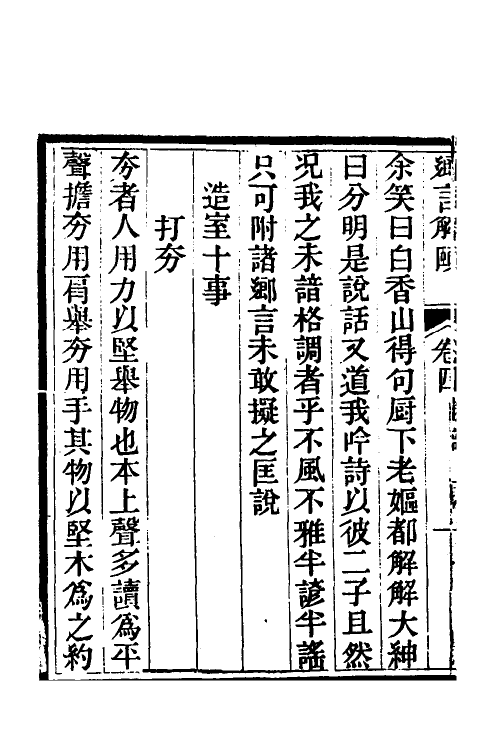 鄉言解頤 卷四
余笑曰白香山得句厨下老嫗都解解大紳
曰分明是說話又道我吟詩以彼二子且然
况我之未諳格調者乎不風不雅半諺半謠
只可附諸鄉言未敢擬之匡說
造室十事
打夯
夯者人用力以堅舉物也本上聲多讀為平
聲擔夯用肩舉夯用手其物以堅木為之約